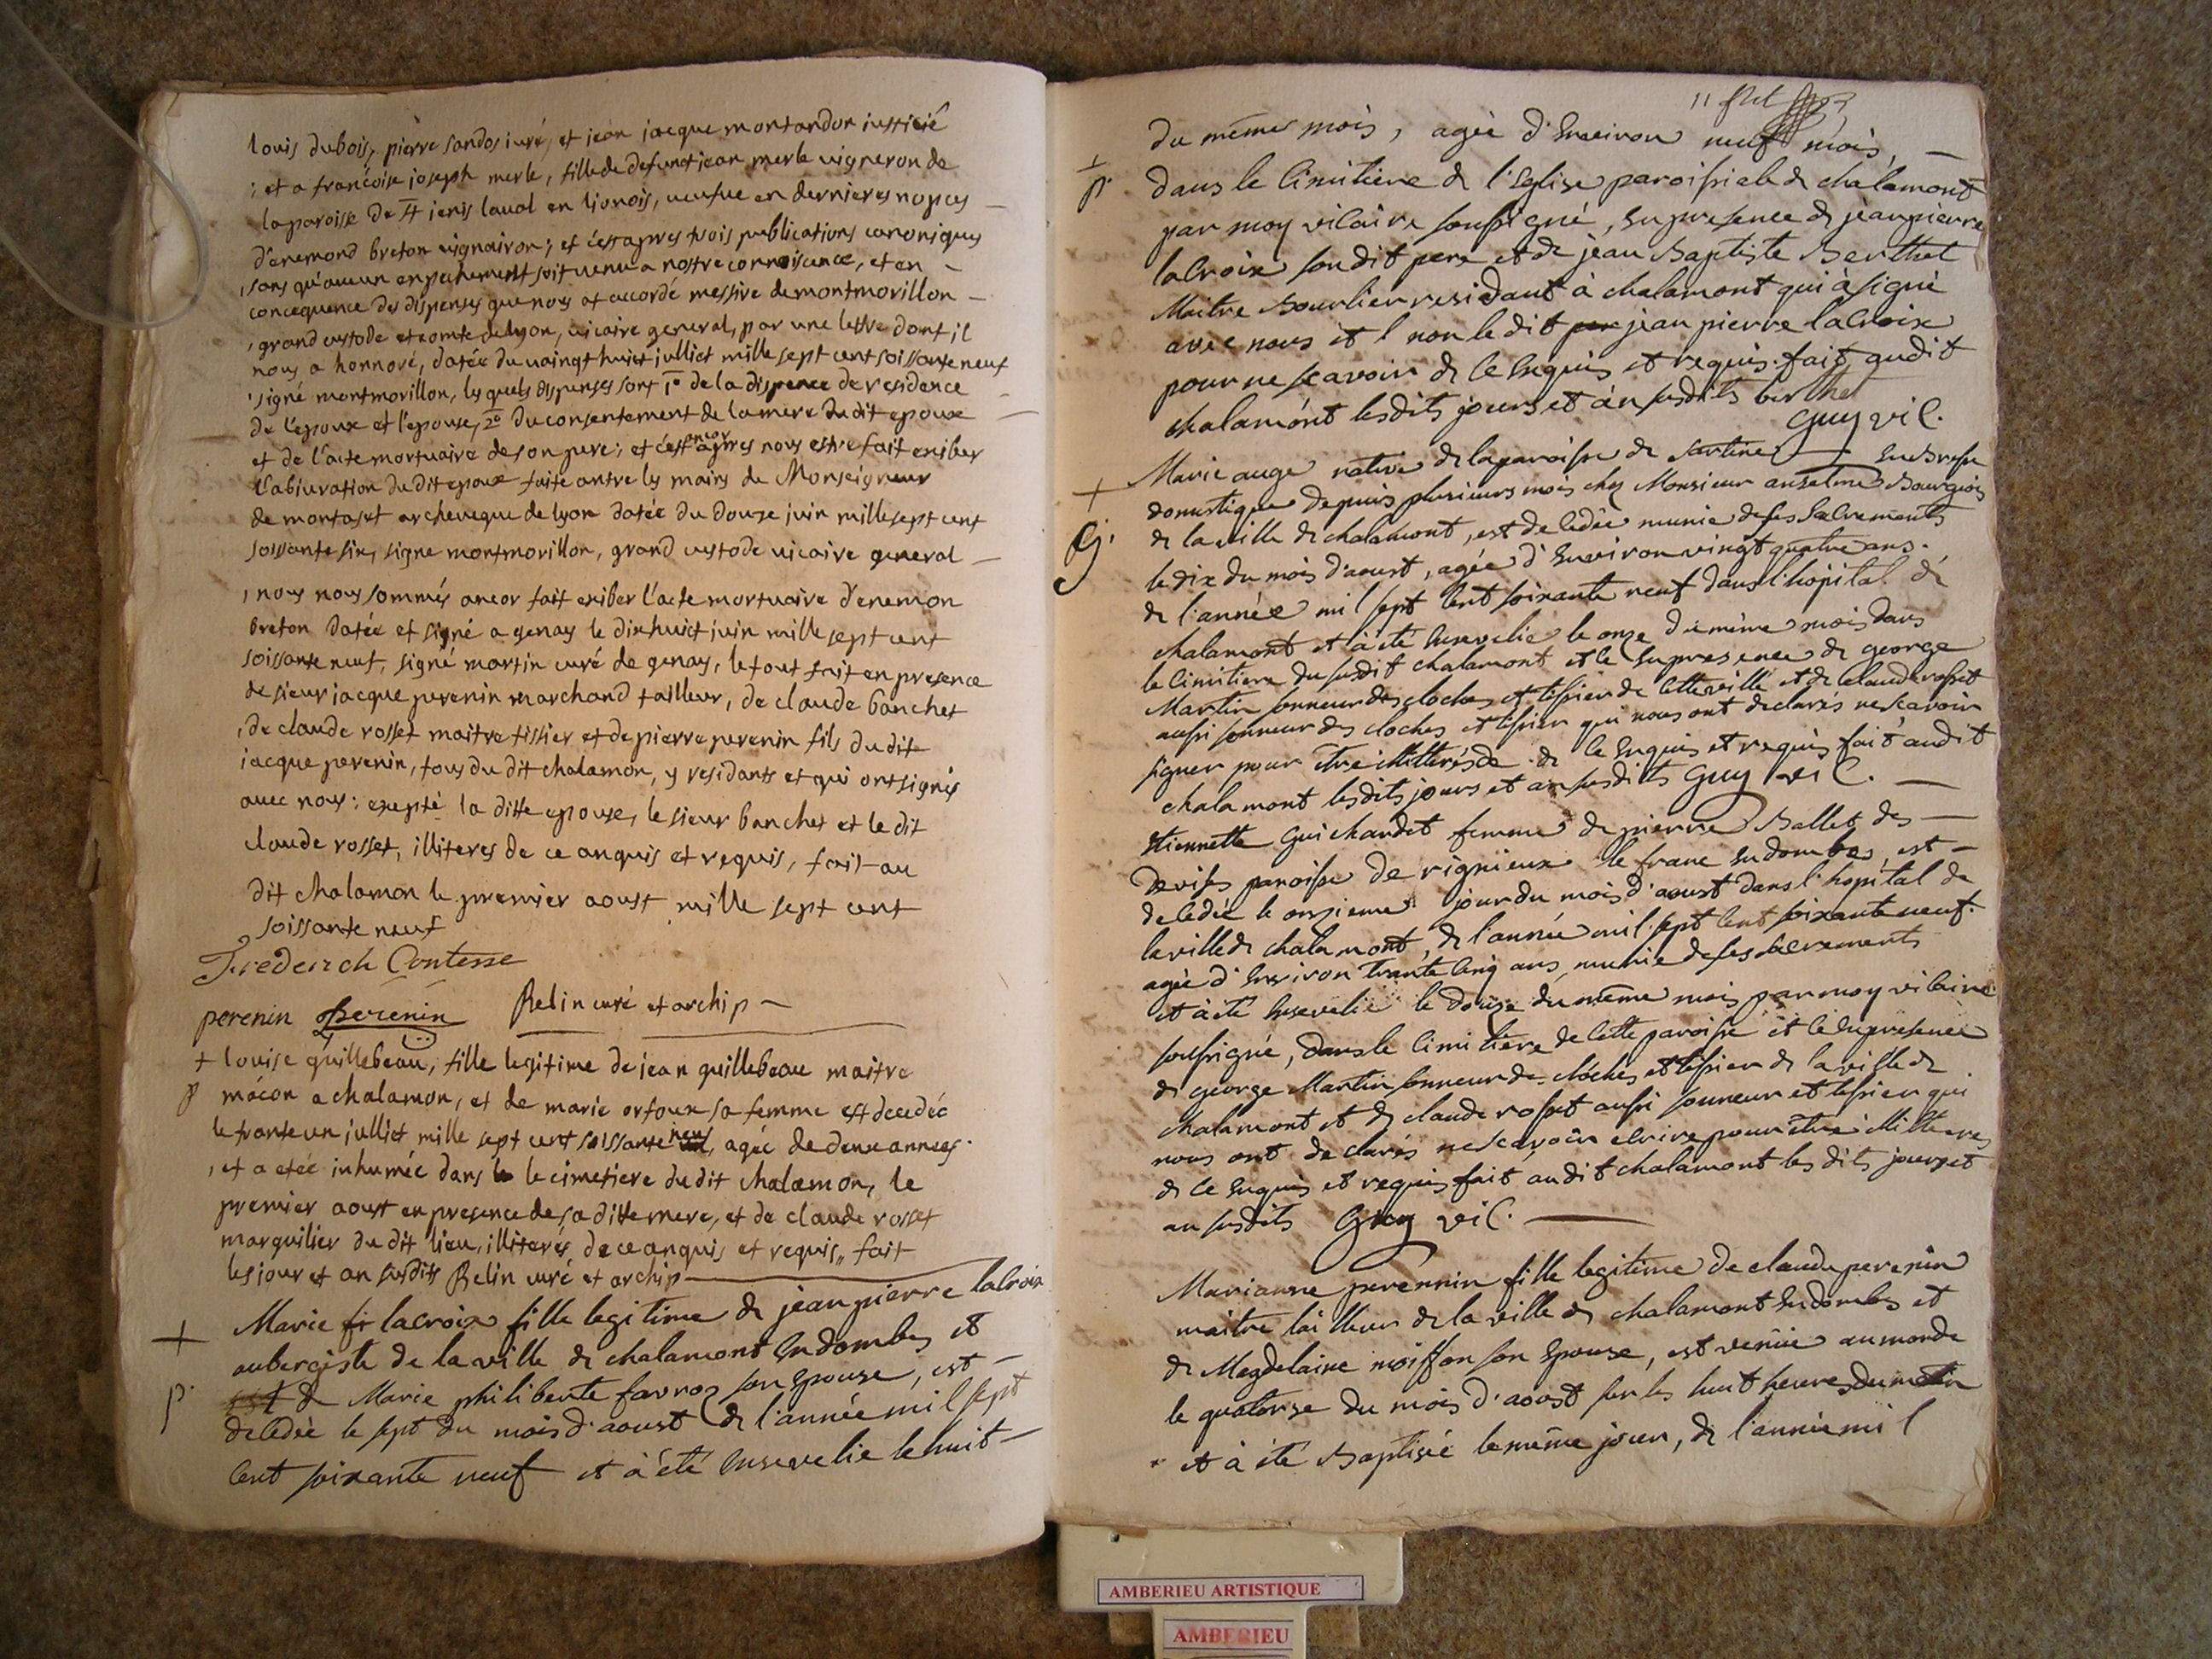 louis dubois, pierre sandos iuré, et jean jacque montandon iusticié
; et a francoise joseph merle, fille de defunct jean merle vigneron de
la paroisse de St jenis laual en lionois, ueufue en dernieres nopces
d'enemond breton uignairon; et c'est apres trois publications canoniques
, sans qu'aucun enpechement soit uenu a nostre connoisance, et en
concequence des dispenses que nous at accordé messire de montmorillon
, grand custode et comte de lyon, uicaire general, par une lettre dont il
nous a honnoré, datée du uaingt huict julliet mille sept cent soissante neuf
, signé montmorillon, les quels dispenses sont 1° de la dispence de residence
de l'epoux et l'epouse, 2° du consentement de la mere du dit epoux
et de l'acte mortuaire de son pere; et c'est ancor apres nous estre fait exiber
l'abiuration du dit epoux faite antre les mains de Monseigneur
de montaset archeueque de lyon datée du douze juin mille sept cent
soissante six, signe montmorillon, grand custode uicaire general
, nous nous sommés ancor fait exiber l'acte mortuaire d'enemon
breton datée et signé a genay le dixhuict juin mille sept cent
soissante neuf, signé martin curé de genay, le tout fait en presence
de sieur jacque perenin marchand tailleur, de claude banchet
, de claude rosset maitre tissier et de pierre perenin fils du dit
jacque perenin, tous du dit chalamon, y residants et qui ont signés
auec nous; exepté la ditte epouse, le sieur banchet et le dit
claude rosset, illiteres de ce anquis et requis, fait au
dit chalamon le premier aoust mille sept cent
soissante neuf
Frederich Contesse
perenin perenin Relin curé et archip
+ louise guillebeau, fille legitime de jean guillebeau maitre
p macon a chalamon, et de marie orfoux sa femme est decedée
le trante un julliet mille sept cent soissante neuf, agée de deux années
, et a etée inhumée dans le cimetiere du dit chalamon, le
premier aoust en presence de sa ditte mere, et de claude rosset
marguilier du dit lieu, illiterés de ce anquis et requis,, fait
les jour et an susdits Relin curé et archip
+ Marie fi lacroix fille legitime de jean pierre lacroix
aubergiste de la ville de chalamont en dombes et
p. est de Marie philiberte favroz son epouse, est
decedeé le sept du mois d'aoust de l'année mil sept
cent soixante neuf et à été ensevelie le huit
11
du même mois, agée d'environ neuf mois,
+ p. dans le cimitiere de l'Eglise paroissiale de chalamont
par moy vicaire soussigné, en presence de jean pierre
lacroix son dit pere et de jean Baptiste Berthet
Maitre Bourlier residant à chalamont qui à signé
avec nous et non le dit per jean pierre lacroix
pour ne scavoir de ce enquis et requis. fait audit
chalamont lesdits jours et an susdits berthet
Guy vic.
+ Marie auge native de la paroisse de sartine en Bresse
domestique depuis plusieurs mois chez Monsieur anselme Bourgeois
g. de la ville de chalamont, est decedée munie de ses sacrements
le dix du mois d'aoust, agée d'environ vingt quatre ans.
de l'année mil sept cent soixante neuf dans l'hopital de
chalamont et à été ensevelie le onze du même mois dans
le cimitiere du susdit chalamont et ce en presence de george
Martin sonneur des cloches et tissier de cette ville et de claude rosset
aussi sonneur des cloches et tissier qui nous ont declarés ne scavoir
signer pour être illitterés de de ce enquis et requis fait audit
chalamont lesdits jours et an susdits Guy vic.
Etiennette Guichardet femme de pierre Ballet des
paroisse de rignieux le franc en dombes, est
decedée le onzieme jour du mois d'aoust dans l'hopital de
la ville de chalamont, de l'année mil sept cent soixante neuf.
agée d'environ trante cinq ans, munie de ses sacrements
et à été ensevelie le douze du même mois par moy vicaire
soussigné, dans le cimitiere de cette paroisse et ce en presence
de george Martin sonneur de cloches et tissier de la ville de
chalamont et de claude rosset aussi sonneur et tissier qui
nous ont declarés ne scavoir ecrire pour être illitteres
de ce enquis et requis fait audit chalamont les dits jours et
an susdits Guy vic.
Marianne perennin fille legitime de claude perenin
maitre tailleur de la ville de chalamont en dombes et
de Magdelaine moisson son epouse, est venüe au monde
le quatorse du mois d'aoust sur les huit heures du matin
et à été Baptisée le même jour, de l'année mil
AMBERIEU ARTISTIQUE
AMBERIEU